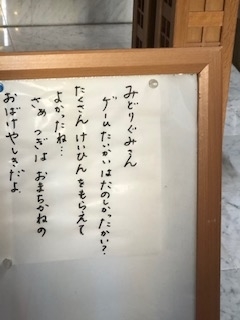 みどりぐみさん
ゲームたいかいはたのしかったかい?
たくさんけいひんをもらえて
よかったね…
さぁ つぎは おまちかねの
おばけやしきだよ